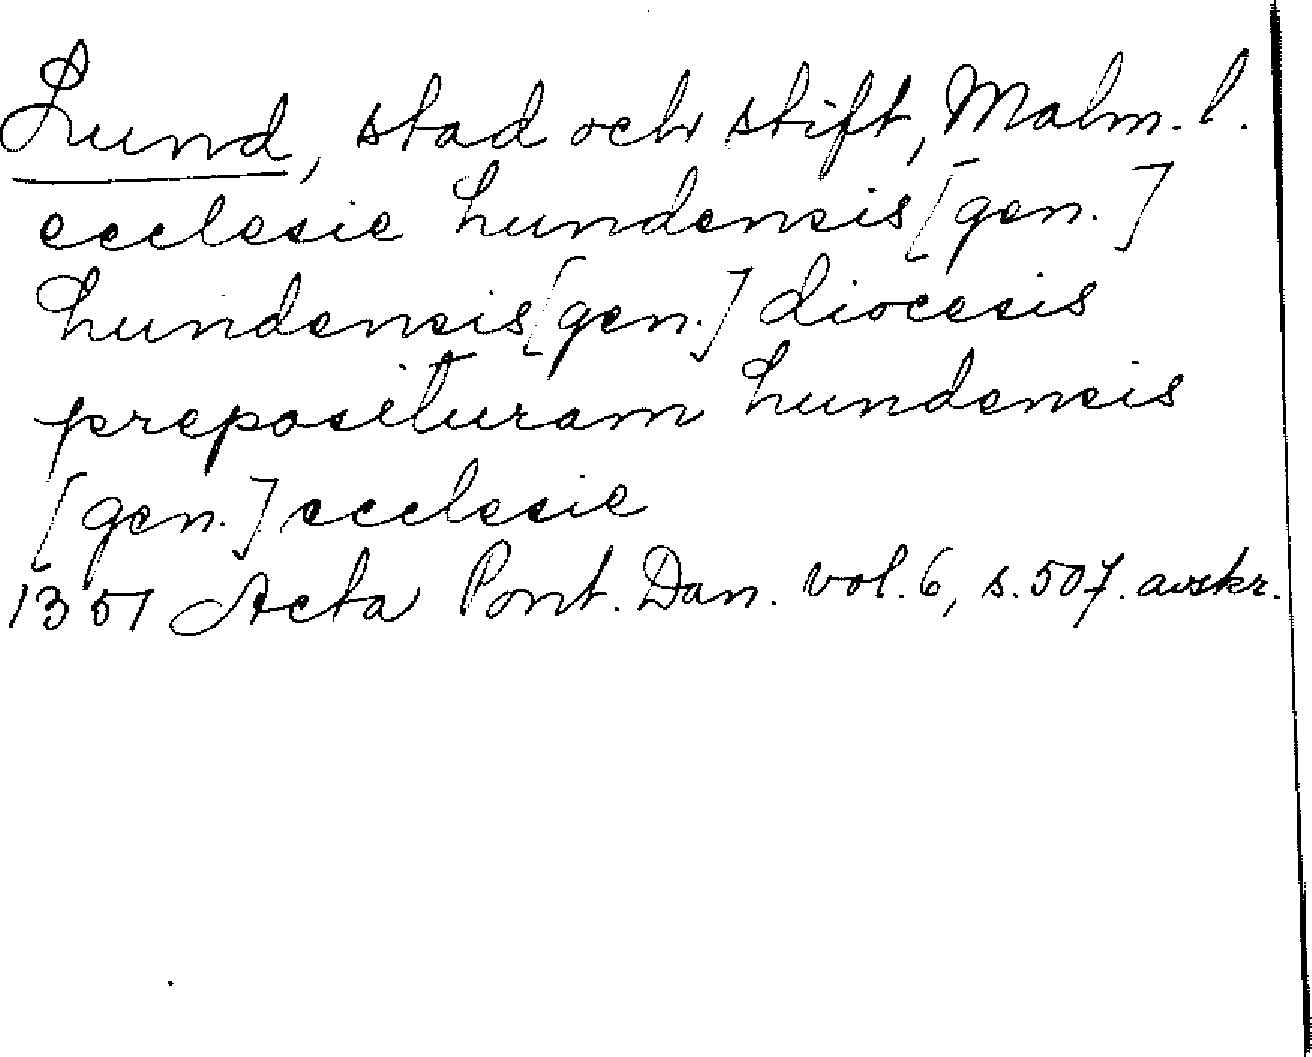 Lund, stad och stift, Malm. l.
ecclesie Lundensis [gen.]
Lundensis [gen.] diocesis
preposituram Lundensis
[gen.] ecclesie
1351 Acta Pont. Dan. vol. 6, s. 507. avskr.